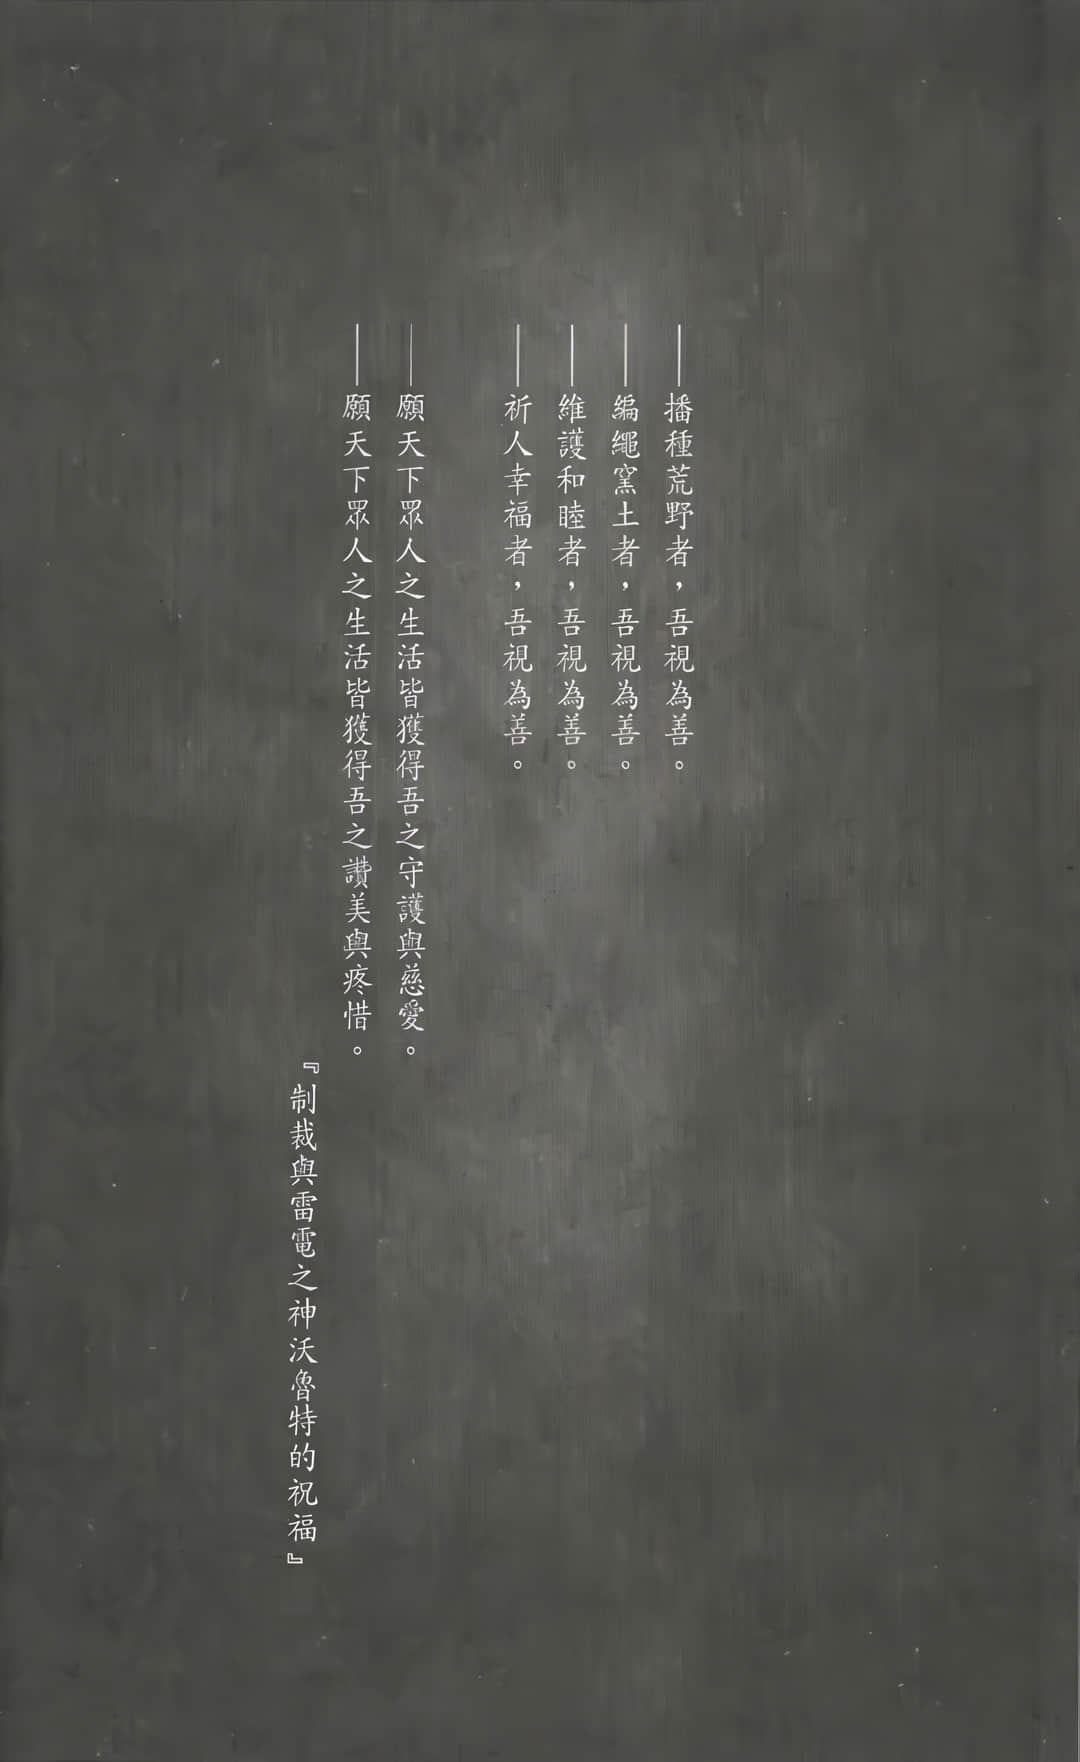 ——播種荒野者，吾視為善。
——編繩窯土者，吾視為善。
——維護和睦者，吾視為善。
——祈人幸福者，吾視為善。
——願天下眾人之生活皆獲得吾之守護與慈愛。
——願天下眾人之生活皆獲得吾之讚美與疼惜。
『制裁與雷電之神沃魯特的祝福』